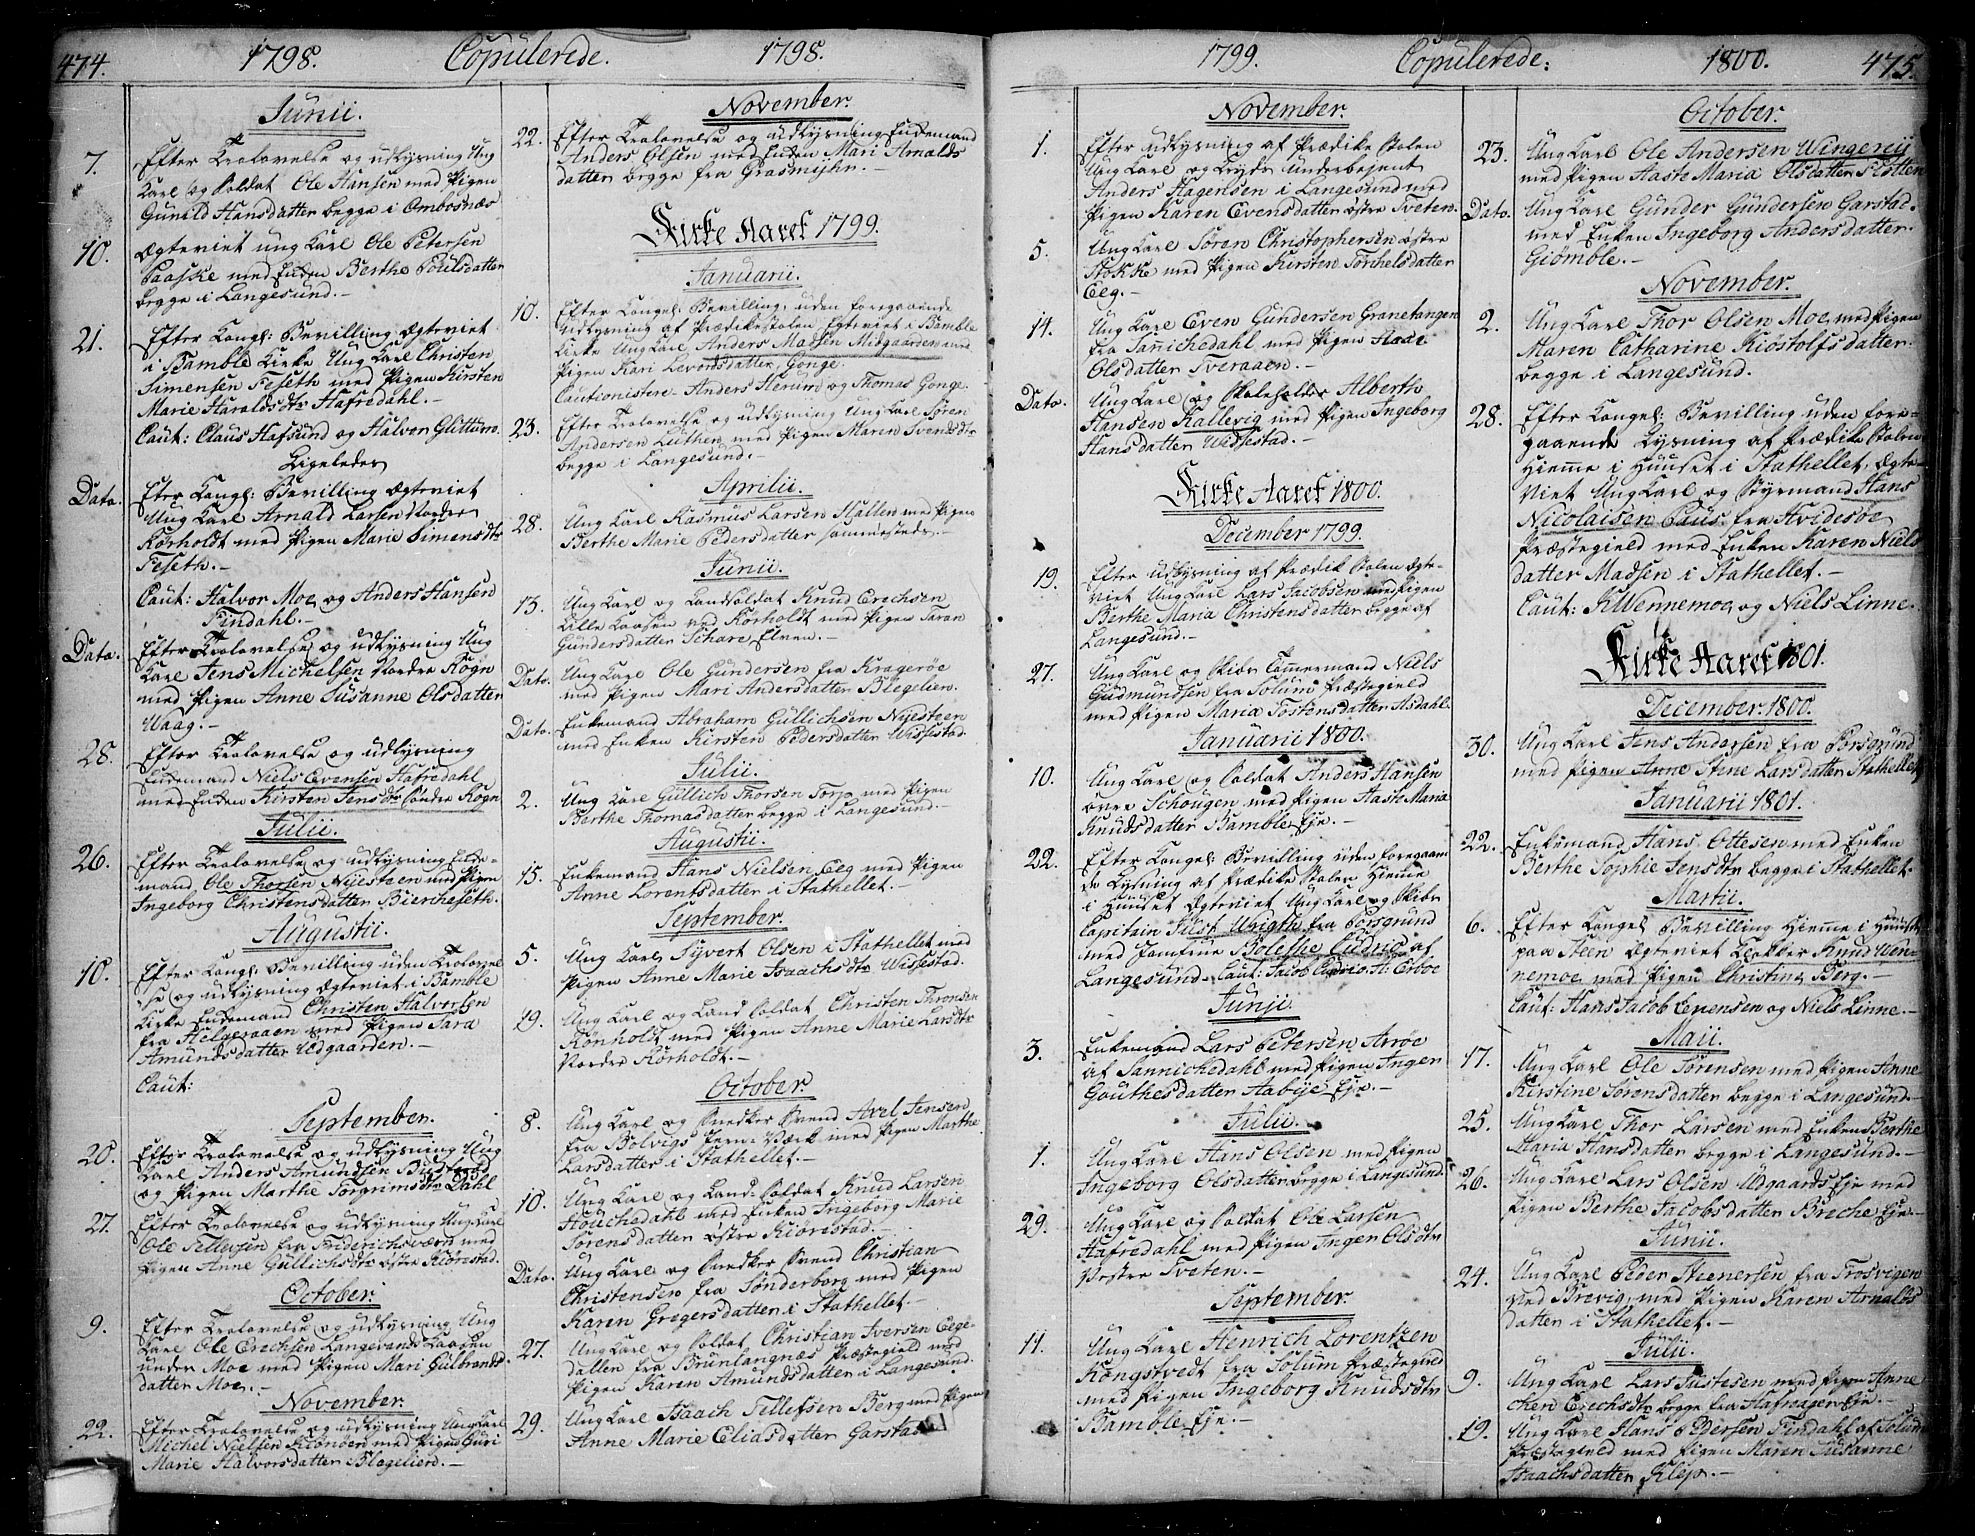 474. 1798. Copulerede. 1798.
Junii.
7. Efter Trolovelse og udlysning Ung
Karl og Soldat Ole Hansen med Pigen
Gunild Hansdatter begge i Ombosnæs
10. Ægteviet ung Karl Ole Petersen
Paaske med Enken Berthe Poulsdatter
begge i Langesund.-
21. Efter Kongl: Bevilling Ægteviet
i Bamble Kirke Ung Karl Christen
Simensen Feseth med Pigen Kirsten
Marie Haraldsdtr Hafredahl.-
Caut: Claus Hafsund og Halvor Glittum.
Ligeledes
Dato. Efter Kongl: Bevilling Ægteviet
Ung Karl Arnald Larsen Nordre
Rörholdt med Pigen Marie Simensdtr
Feseth.-
Caut: Halvor Moe og Anders Hansen
Findahl.-
Dato. Efter Trolovelse og udlysning Ung
Karl Jens Michelsen Nordre Rögn
med Pigen Anne Susanne Olsdatter
Waag.-
28. Efter Trolovelse og udlysning
Enkemand Niels Evensen Hafredahl
med Enken Kirsten Jensdtr Söndre Rögn
Julii.
26. Efter Trolovelse og udlysning Enke-
mand Ole Thorsen Nyesteen med Pigen
Ingeborg Christensdatter Bierkeseth.-
Augustii.
10. Efter Kongl: Bevilling uden Trolovel
se og udlysning Ægteviet i Bamble
Kirke Enkemand Christen Halvorsen
fra Helgeraaen med Pigen Sara
Amundsdatter Udgaarden.-
Caut:
September.
20. Efter Trolovelse og udlysning Ung
Karl Anders Amundsen
og Pigen Marthe Torgrimsdtr Dahl
27. Efter Trolovelse og udlysning Ung Karl
Ole Tellefsen fra Friderichsværn med
Pigen Anne Gullichsdtr østre Kiörestad.
October.
9. Efter Trolovelse og udlysning Ung
Karl Ole Erichsen Langevands Kaasen
under Moe med Pigen Mari Gulbrands-
datter Moe.-
November.
22. Efter Trolovelse og udlysning Ung Karl
Michel Nielsen med Pigen Guri
Marie Halvorsdatter Blegelien.-
November.
22. Efter Trolovelse og udlysning Enkemand
Anders Olsen med Enken Mari Arnalds
datter begge fra Grasmyhr.-
Kirke Aaret 1799.
Januarii.
10. Efter Kongel: Bevilling, uden foregaaende
Udlysning af Prædikestolen Ægteviet i Bamble
Kirke Ung Karl Anders Madsen Midgaarden med
Pigen Kari Levorsdatter Gonge.
Cautionister Anders Herum og Thomas Gonge.
23. Efter Trolovelse og udlysning Ung Karl Sören
Andersen Luthen med Pigen Maren Svendsdtr
begge i Langesund.-
Aprilii.
28. Ung Karl Rasmus Larsen Hallen med Pigen
Berthe Marie Pedersdatter sammesteds.-
Junii.
13. Ung Karl og Landsoldat Knud Erichsen
Lille Kaasen ved Rörholdt med Pigen Taran
Gundersdatter Schare Elven.-
Dato. Ung Karl Ole Gundersen fra Kragerøe
med Pigen Mari Andersdatter Blegelien.
Dato. Enkemand Abraham Gullichsen Nyesteen
med Enken Kirsten Pedersdatter Wissestad.
Julii.
2. Ung Karl Gullich Thorsen Torp med Pigen
Berthe Thomasdatter begge i Langesund.-
Augustii.
15. Enkemand Hans Nielsen Eeg med Pigen
Anne Lorentsdatter i Stathellet.-
September.
5. Ung Karl Syvert Olsen i Stathellet med
Pigen Anne Marie Isaachsdtr Wissestad.
19. Ung Karl og Land Soldat Christen Thronsen
Rönholdt med Pigen Anne Marie Larsdtr
Nordre Rörholdt.-
October.
8. Ung Karl og Snedker Svend Axel Jensen
fra Bolvigs Jern-Værk med Pigen Marthe
Larsdatter i Stathellet.-
10. Ung Karl og Land-Soldat Knud Larsen
Houchedahl med Enken Ingeborg Marie
Sörensdatter østre Kiörestad.-
Dato. Ung Karl og Snedker Svend Christian
Christensen fra Sönderborg med Pigen
Karen Gregersdatter i Stathellet.-
27. Ung Karl og Soldat Christian Iversen Eege-
dallen fra Brunlangnæs Præstegield med
Pigen Karen Amundsdatter i Langesund.
29. Ung Karl Isaach Tellefsen Berg med Pigen
Anne Marie Eliasdatter Garstad.
1799. Copulerede: 1800. 475.
November.
1. Efter udlysning af Prædike Stolen
Ung Karl og Krydr. Underbetjent
Anders Hagensen i Langesund med
Pigen Karen Evensdatter østre Tveten.
5. Ung Karl Sören Christophersen østre
Stokke med Pigen Kirsten Torchelsdatter
Eeg.-
14. Ung Karl Even Gundersen Granetangen
fra Sannichedahl med Pigen Aase
Olsdatter Tveraaen.-
Dato. Ung Karl og Skoleholder Alberth
Hansen Kallevig med Pigen Ingeborg
Hansdatter Wissestad.-
Kirke Aaret 1800.
December 1799.
19. Efter udlysning af Prædik Stolen Ægte-
viet Ung Karl Lars Jacobsen med Pigen
Berthe Maria Christensdatter begge af
Langesund.-
27. Ung Karl og Skibs Tömmermand Niels
Gudmundsen fra Solum Præstegield
med Pigen Maria Tostensdatter Asdahl.
Januarii 1800.
10. Ung Karl og Soldat Anders Hansen
øvre Schougen med Pigen Aaste Maria
Knudsdatter Bamble Eje.-
22. Efter Kongel: Bevilling uden foregaaen-
de Lysning af Prædike Stolen Hiemme
i Huuset Ægteviet Ung Karl og Skibs
Capitain Just Wrigth fra Porsgrund
med Jomfrue Bolethe Cudrio af
Langesund.- Caut: Jacob Cudrio A: Esboe
Junii.
3. Enkemand Lars Petersen Arröe
af Sannichedahl med Pigen Ingen
Gouthesdatter Aabye Eje.-
Julii.
1. Ung Karl Hans Olsen med Pigen
Ingeborg Olsdatter begge i Langesund.
29. Ung Karl og Soldat Ole Larsen
Hafredahl med Pigen Ingen Olsdtr
Vestre Tveten.-
September.
11. Ung Karl Henrich Lorentzen
Kongstvedt fra Solum Præstegield
med Pigen Ingeborg Knudsdtr
Bamble Eje.-
October.
23. Ung Karl Ole Andersen Wingereij
med Pigen Aaste Maria Olsdatter Slotten
Dato. Ung Karl Gunder Gundersen Garstad.
med Enken Ingeborg Andersdatter
Giömble.-
November.
2. Ung Karl Thor Olsen Moe med Pigen
Maren Catharine Kiöstolfsdatter
begge i Langesund.
28. Efter Kongel: Bevilling uden fore-
gaaende Lysning af Prædike Stolen
Hiemme i Huuset i Stathellet, Ægte-
viet Ung Karl og Styrmand Hans
Nicolaisen Paus fra Hvidesöe
Præstegield med Enken Karen Niels
datter Madsen i Stathellet.-
Caut: K Wennemoe og Niels Linne.
Kirke Aaret 1801.
December 1800.
30. Ung Karl Jens Andersen fra Porsgrund
med Pigen Anne Stine Larsdatter Stathellet
Januarii 1801.
22. Enkemand Hans Ottesen med Enken
Berthe Sophie Jensdtr begge i Stathellet.
Martii.
6. Efter Kongel: Bevilling Hiemme i Huuset
paa Steen Ægteviet Klokker Knud Wen-
nemoe med Pigen Christine Berg.-
Caut: Hans Jacob Eepensen og Niels Linne.-
Maii.
17. Ung Karl Ole Sörensen med Pigen Anne
Kirstine Sörensdatter begge i Langesund.-
25. Ung Karl Thor Larsen med Enken Berthe
Maria Hansdatter begge i Langesund.-
26. Ung Karl Lars Olsen Udgaards Eje med
Pigen Berthe Jacobsdatter Breche Eje.-
Junii.
24. Ung Karl Peder Steenersen fra Trosvigen
ved Brevig, med Pigen Karen Arnolds
datter i Stathellet.-
Julii.
9. Ung Karl Lars Justesen med Pigen Anne
Erechsdtr begge fra Hafreager Eje.-
19. Ung Karl Hans Pedersen Findahl af Solum
Præstegield med Pigen Maren Susanne
Isaachsdatter Klep.-